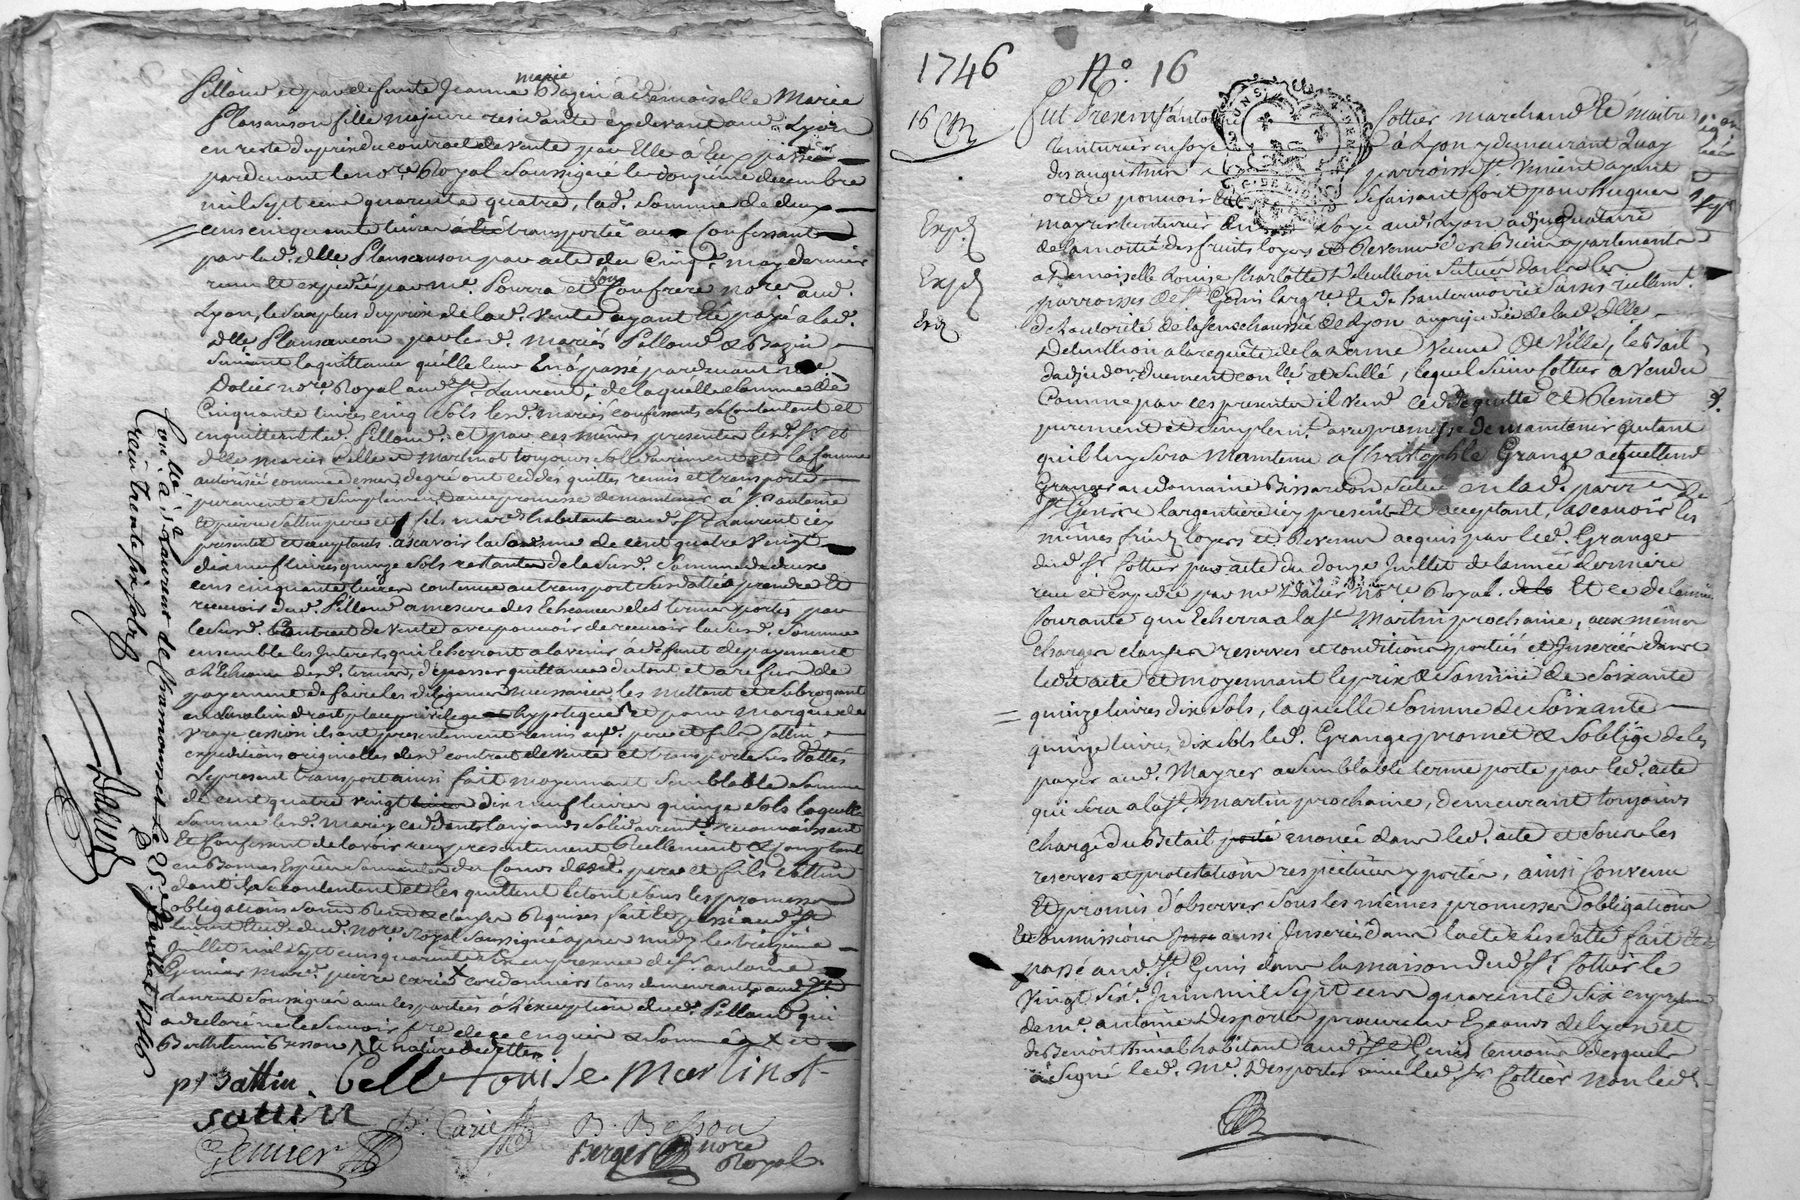 marie
pillond et par defunte Jeanne Bazin a demoiselle Marie
Plansanson fille majeure residante cy devant aud. Lyon
en reste du prix du contract de vente par Elle a Eux passé
pardevant le no.re Royal soussigné le douzieme decembre
mil sept cens quarante quatre, lad. somme de deux
cens cinquante livres transportée aux Confessants
par lad. dlle Plansanson par acte du Cinq.e may dernier
receu et expedié par me. Pourra et son Confrere no.res aud.
Lyon, le surplus du prix de lad. vente ayant été payé a lad.
dlle Plansanson par lesd. mariés Pillond & Bazin
suivant la quittance qu'elle leur En a passé pardevant me
Dalier no.re Royal aud. St. Laurent, de laquelle somme de
Cinquante livres cinq sols lesd. mariés confessants se Contentent et
en quittent led. Pillond. et par ces mêmes presentes lesd. Sr. et
dlle mariés Celle et Martinot toujours solidairement et la femme
autorisée comme dessus, de gré ont cedés quittés remis et transporté
purement et simplement avec promesse de maintenir à Srs. antoine
et pierre Sattin pere et fils march.ds habitant aud. St. Laurent icy
presents et acceptants. ascavoir la somme de cent quatre vingt
dix neuf livres quinze sols restante de la susd. somme de deux
cens cinquante livres contenue au transport susdatté a prendre et
recevoir dud. Pillond a mesure des Echeances des termes portés par
le susd. Contract de vente avec pouvoir de recevoir la susd. somme
ensemble les Interets qui Echerront a l'avenir à defaut de payement
a l'Echeance desd. termes, d'en passer quittance du tout et a refus de
payement de faire les diligences necessaires, les mettant et subrogeant
en leur lieu droit place privilege et hypoteque, et pour marque de
vraye cession ils ont presentement remis auxd. pere et fils Sattin
expeditions originalles desd. contract de vente et transport susdattés
Le present transport ainsi fait moyennant semblable somme
de cent quatre vingt dix neuf livres quinze sols laquelle
somme lesd. mariés cedants toujours solidairement reconnoissent
Et Confessent de l'avoir receu presentement reellement & comptant
en Bonnes Especes sonnantes du Cours desd. pere et fils Sattin
dont ils se contentent et les quittent le tout sous les promesses
obligations soumissions & clauses Requises fait Et passé aud. St.
Laurent etude dud. no.re Royal soussigné apres midy le treizieme
Juillet mil sept cens quarante six en presence de Sr. antoine
Genier march. pierre carié x cordonniers tous demeurants aud. St.
Laurent soussignés avec les parties à l'exception dud. Pillond qui
a declaré ne le scavoir faire de ce enquis & sommé x et
Berthelemi Besson
pr Sattin Celle Louise Martinot
Sattin
P. Carié B. Besson
Genier Berger no.re
Royal
Con.llé à St. Laurent de Chamousset le 25e. Juillet 1746
reçu trente six sols
1746 N.o 16
16
Fut Present Sr. antoine Cottier marchand Et maitre
teinturier en soye à Lyon y demeurant Quay
des augustins parroisse St. Vincent ayant
ordre pouvoir se faisant fort pour hugues
mayres teinturier en soye aud. Lyon adjudicataire
Exp.é
de la moitié des fruits loyers et Revenus des Biens appartenants
a Demoiselle Louise Charlotte Debullion situés dans les
Exp.é
parroisses de St. Genis l'arg.re Et de hauterivoire saisis reellem.t
Exp.é
de l'autorité de la senechaussée de Lyon au prejudice de lad. dlle
Debullion a la requête de la dame veuve De Ville, le bail
d'adjud.on duement con.llé et scellé, lequel Sieur Cottier a vendu
Comme par ces presentes il vend cede quitte et Remet
purement et simplem.t avec promesse de maintenir autant
qu'il luy sera Maintenu a Christophle Grange acquellement
Granger au domaine Bissardon situé en lad. parroisse de
St. Genis l'argentiere icy present Et acceptant, ascavoir les
mêmes fruits loyers et Revenus acquis par led. Grange
dud. Sr. Cottier par acte du douze Juillet de l'année derniere
receu et expedié par me Dalier no.re Royal. Et ce de l'année
Courante qui Echerra a la St. Martin prochaine, aux mêmes
charges clauses reserves et conditions portées et Inserées dans
ledit acte et moyennant le prix & somme de soixante
quinze livres dix sols, laquelle somme de soixante
quinze livres dix sols led. Grange promet & s'oblige de les
payer aud. Mayres a semblable terme porté par led. acte
qui sera a la St. Martin prochaine, demeurant toujours
chargé du Betail enoncé dans led. acte et sous les
reserves et protestations respectives y portées, ainsi Convenu
Et promis d'observer sous les mêmes promesses d'obligations
Et soumissions aussi Inserées dans l'acte susdatté fait Et
passé aud. St. Genis dans la maison dud. Sr. Cottier le
vingt six.e Juin mil sept cens quarente six en presence
de me. antoine Desportes procureur Es cours de Lyon et
de Benoit Thival habitant aud. St. Genis temoins desquels
a signé led. me. Desportes avec led. Sr. Cottier non led.